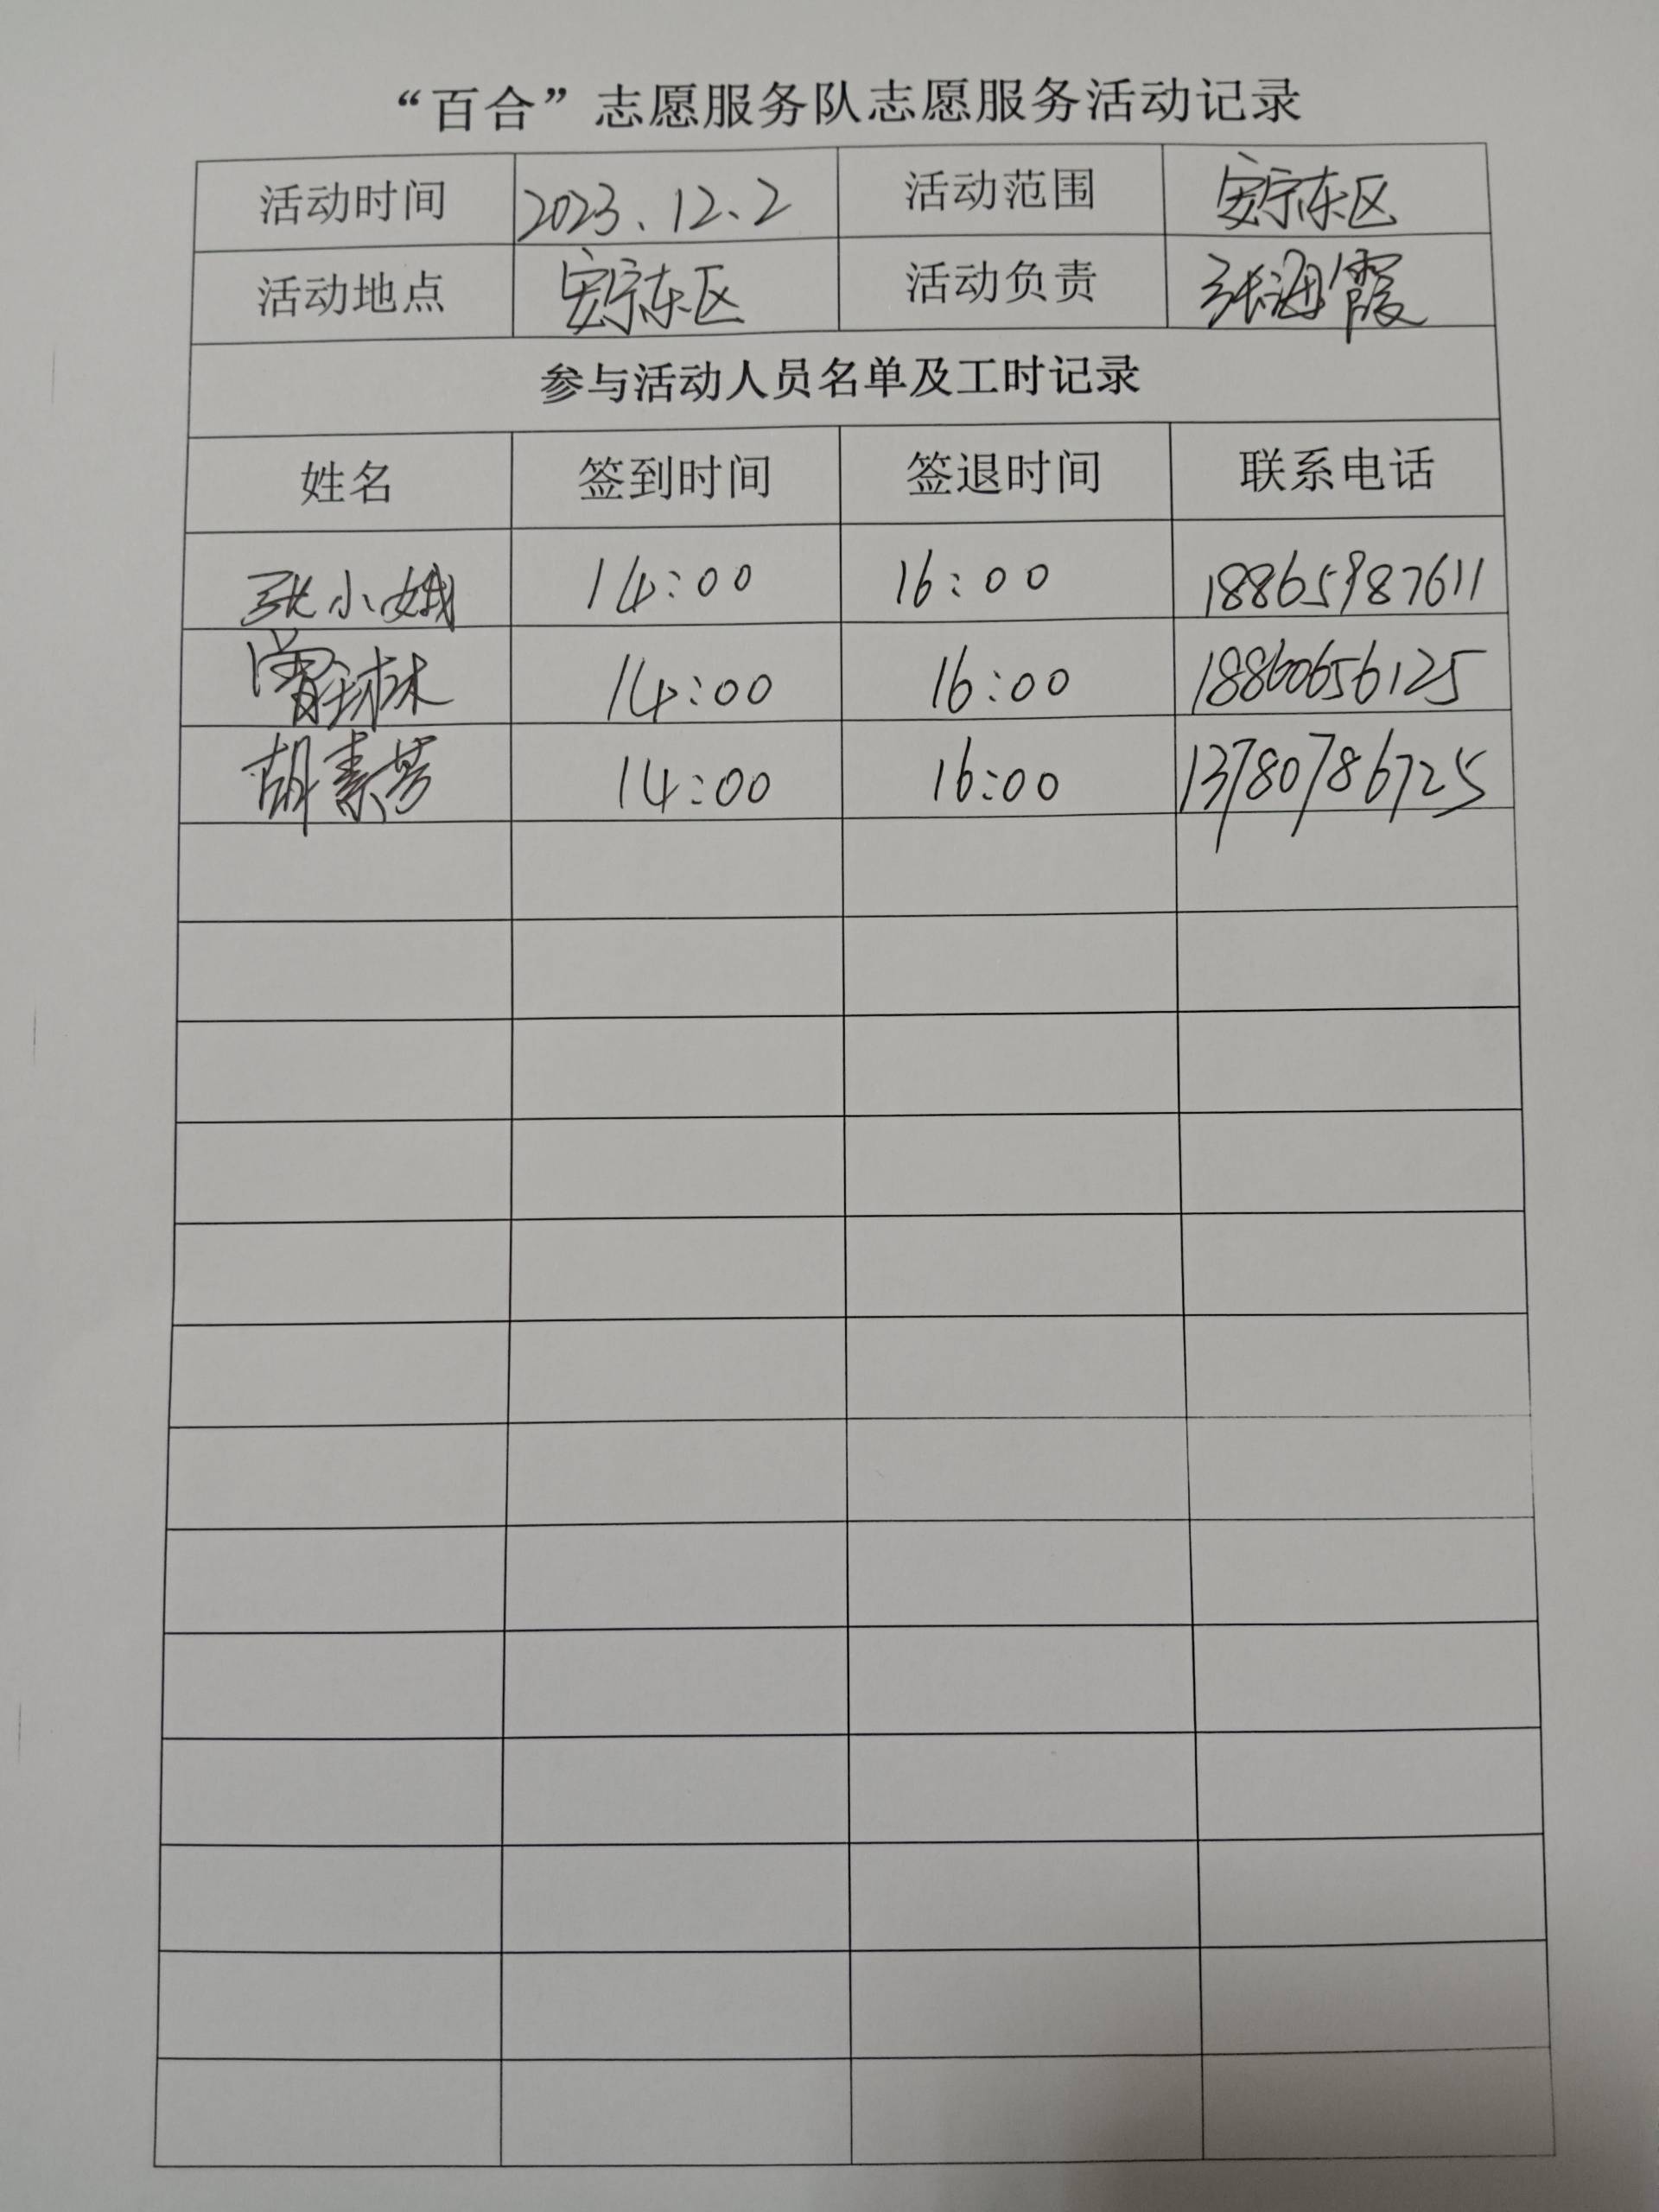 “百合”志愿服务队志愿服务活动记录
活动时间 2023.12.2 活动范围 安宁东区
活动地点 安宁东区 活动负责 张海霞
参与活动人员名单及工时记录
姓名 签到时间 签退时间 联系电话
张小娥 14:00 16:00 18865987611
曾球林 14:00 16:00 18860656125
胡素芳 14:00 16:00 13780786725